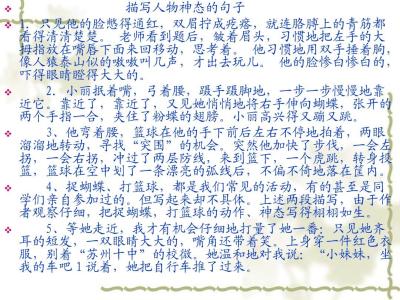 描写人物神态的句子
1、只见他的脸憋得通红，双眉拧成疙瘩，就连胳膊上的青筋都
看得清清楚楚。 老师看到题后，皱着眉头，习惯地把左手的大
拇指放在嘴唇下面来回移动，思考着。 他习惯地用双手捶着胸，
像人猿泰山似的嗷嗷叫几声，才出去玩儿。 他的脸惨白惨白的，
吓得眼睛瞪得大大的。
2、小丽抿着嘴，弓着腰，蹑手蹑脚地，一步一步慢慢地靠
近它。靠近了，靠近了，又见她悄悄地将右手伸向蝴蝶，张开的
两个手指一合，夹住了粉蝶的翅膀。小丽高兴得又蹦又跳。
3、他弯着腰，篮球在他的手下前后左右不停地拍着，两眼
溜溜地转动，寻找“突围”的机会。突然他加快了步伐，一会左
拐，一会右拐，冲过了两层防线，来到篮下，一个虎跳，转身投
篮，篮球在空中划了一条漂亮的弧线后，不偏不倚地落在筐内。
4、捉蝴蝶、打篮球，都是我们常见的活动，有的甚至是同
学们亲自参加过的。但写起来却不具体。上述两段描写，由于作
者观察仔细，把捉蝴蝶、打篮球的动作、神态写得栩栩如生。
5、等她走近，我才有机会仔细地打量了她一番：只见她齐
耳的短发，一双眼睛大大的，嘴角还带着笑。上身穿一件红色衣
服，别着“苏州十中”的校徽。她温和地对我说：“小妹妹，坐
我的车吧１说着，她把自行车推了过来。